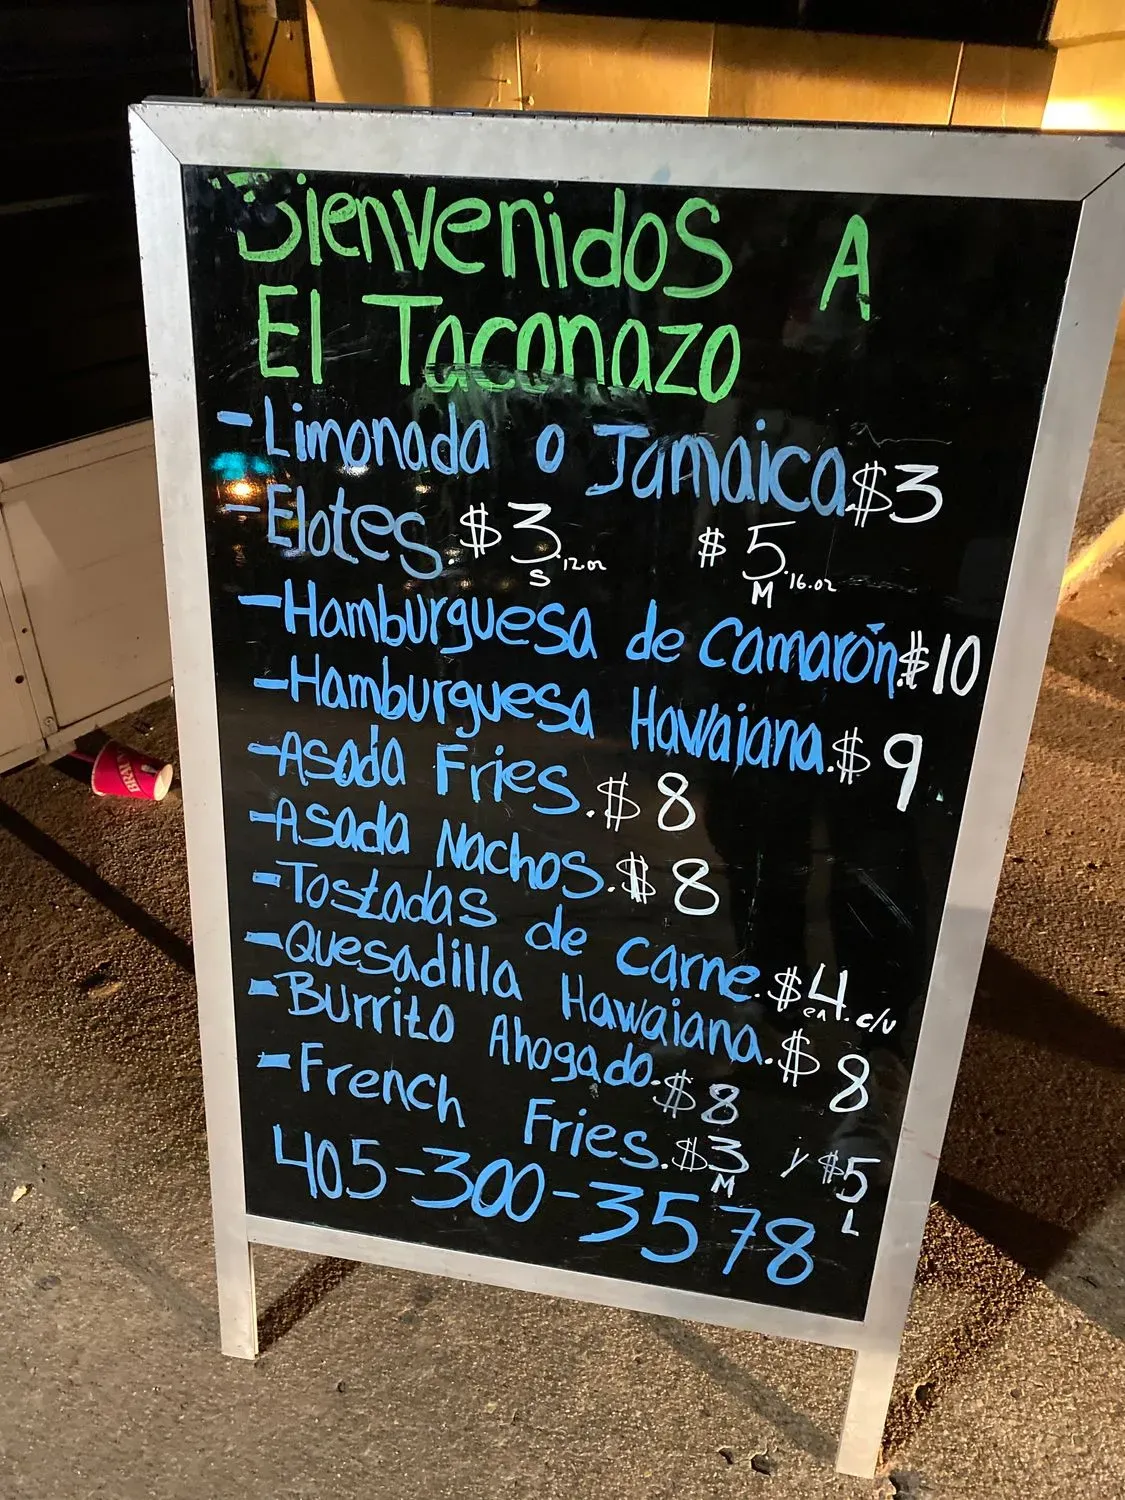 Bienvenidos A
El Taconazo
- Limonada o Jamaica $3
- Elotes. $3 S .12.oz $5 M .16.oz
- Hamburguesa de Camarón. $10
- Hamburguesa Hawaiana. $9
- Asada Fries. $8
- Asada Nachos. $8
- Tostadas de carne. $4. c/u
- Quesadilla Hawaiana. $8
- Burrito Ahogado. $8
- French Fries. $3 M y $5 L
405-300-3578